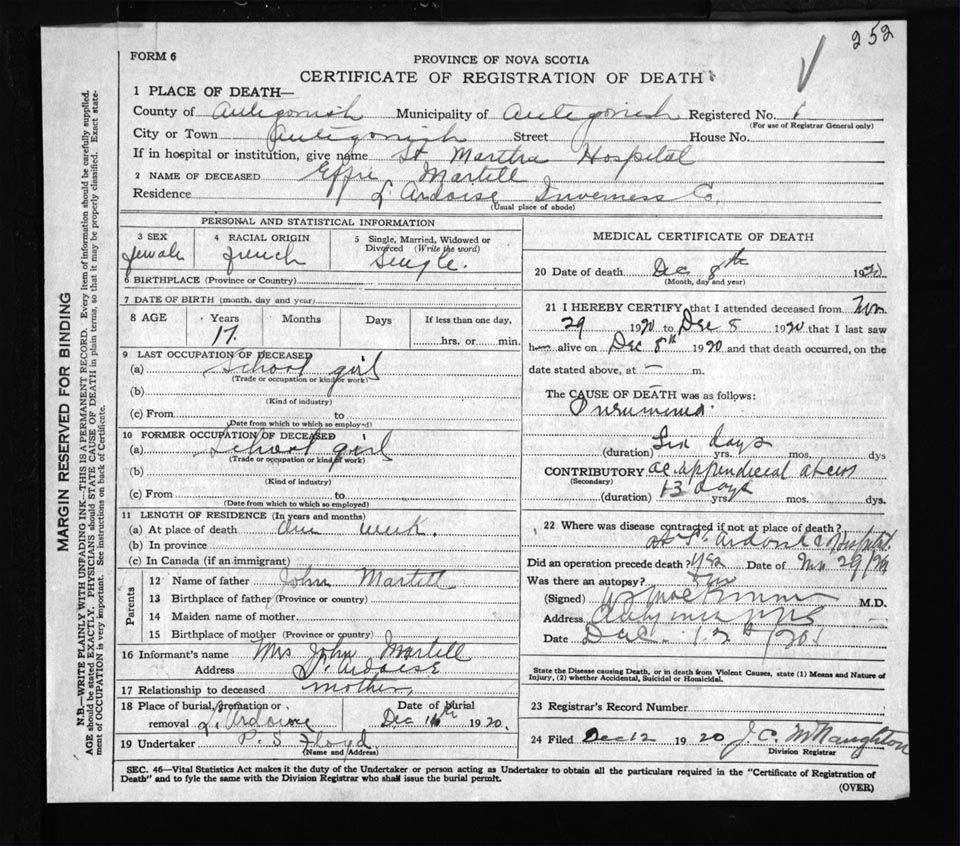 252
FORM 6
PROVINCE OF NOVA SCOTIA
CERTIFICATE OF REGISTRATION OF DEATH
1 PLACE OF DEATH—
County of Antigonish Municipality of Antigonish Registered No.
(For use of Registrar General only)
City or Town Antigonish Street House No.
If in hospital or institution, give name St Martha Hospital
2 NAME OF DECEASED Effie Martell
Residence L'Ardoise Inverness Co.
(Usual place of abode)
PERSONAL AND STATISTICAL INFORMATION
3 SEX female
4 RACIAL ORIGIN french
5 Single, Married, Widowed or Divorced (Write the word) Single.
6 BIRTHPLACE (Province or Country)
7 DATE OF BIRTH (month, day and year)
8 AGE Years 17. Months Days If less than one day, hrs. or min.
9 LAST OCCUPATION OF DECEASED
(a) School girl
(Trade or occupation or kind of work)
(b)
(Kind of industry)
(c) From to
(Date from which to which so employed)
10 FORMER OCCUPATION OF DECEASED
(a) School girl
(Trade or occupation or kind of work)
(b)
(Kind of industry)
(c) From to
(Date from which to which so employed)
11 LENGTH OF RESIDENCE (In years and months)
(a) At place of death one week.
(b) In province
(c) In Canada (if an immigrant)
Parents
12 Name of father John Martell
13 Birthplace of father (Province or country)
14 Maiden name of mother
15 Birthplace of mother (Province or country)
16 Informant's name Mrs John Martell
Address L'Ardoise
17 Relationship to deceased mother,
18 Place of burial, cremation or removal L'Ardoise Date of burial Dec 1920.
19 Undertaker P. S. Floyd
(Name and Address)
MEDICAL CERTIFICATE OF DEATH
20 Date of death Dec 8th 1920
(Month, day and year)
21 I HEREBY CERTIFY that I attended deceased from Nov.
29 1920 to Dec 8 1920 that I last saw
alive on Dec 8th 1920 and that death occurred, on the
date stated above, at — m.
The CAUSE OF DEATH was as follows:
Pneumonia.
(duration) days yrs. mos. dys
CONTRIBUTORY ac. appendiceal
(Secondary)
(duration) 13 days yrs. mos. dys.
22 Where was disease contracted if not at place of death?
at L'Ardoise Hospital.
Did an operation precede death? yes Date of Nov 29/20
Was there an autopsy?
(Signed) M.D.
Address
Date Dec. 12th
State the Disease causing Death, or in death from Violent Causes, state (1) Means and Nature of
Injury, (2) whether Accidental, Suicidal or Homicidal.
23 Registrar's Record Number
24 Filed Dec 12 1920 J. C. McNaughton
Division Registrar
SEC. 46—Vital Statistics Act makes it the duty of the Undertaker or person acting as Undertaker to obtain all the particulars required in the "Certificate of Registration of
Death" and to fyle the same with the Division Registrar who shall issue the burial permit.
(OVER)
MARGIN RESERVED FOR BINDING
N.B.—WRITE PLAINLY WITH UNFADING INK—THIS IS A PERMANENT RECORD. Every item of information should be carefully supplied.
AGE should be stated EXACTLY. PHYSICIANS should STATE CAUSE OF DEATH in plain terms, so that it may be properly classified. Exact statement of OCCUPATION is very important. See instructions on back of Certificate.